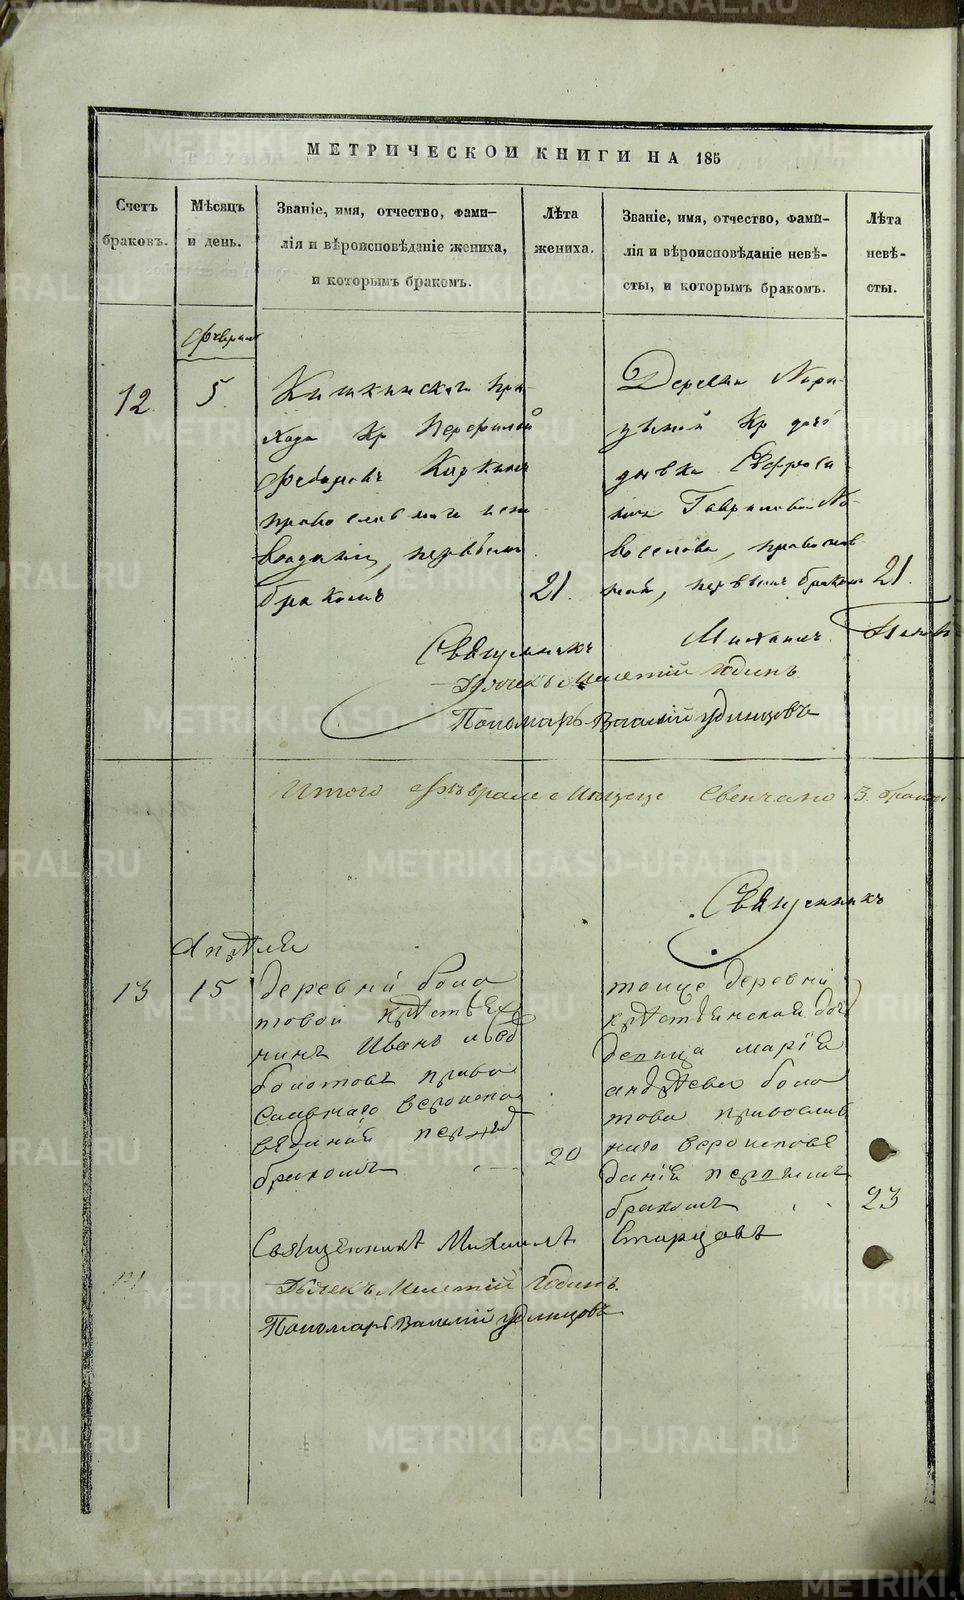 МЕТРИЧЕСКОЙ КНИГИ НА 185
Счетъ браковъ.
Мѣсяцъ и день.
Званіе, имя, отчество, фами-
лія и вѣроисповѣданіе жениха,
и которымъ бракомъ.
Лѣта жениха.
Званіе, имя, отчество, фами-
лія и вѣроисповѣданіе невѣ-
сты, и которымъ бракомъ.
Лѣта невѣ-
сты.
Февраля
12
5
Кишкинскаго при-
хода Кр Перфилій
Киркинъ
православнаго испо
ведания, первымъ
бракомъ
21.
Деревни
Кр доче
девка Ефроси
ния Гаврилова Но-
воселова, православ
ной, первымъ бракомъ
21.
Священникъ Михаилъ
Дьячекъ Мелетий Юдинъ
Пономарь Василий Удинцовъ
Итого Феврале Месяце Свенчано 3. брака
Священникъ
Апреля
13
15
деревни боло
товой крестья
нинъ Иванъ
болотовъ право
славнаго вероиспо
ведания первый
бракомъ
20
тоице деревни
крестьянская доч
девица мария
андреева боло
това православ
наго вероисповѣ
дания первымъ
бракомъ
23
Священникъ Михаилъ Старцовъ
Дьячекъ Мелетий Юдинъ.
Пономарь Василий Удинцовъ
METRIKI.GASO-URAL.RU